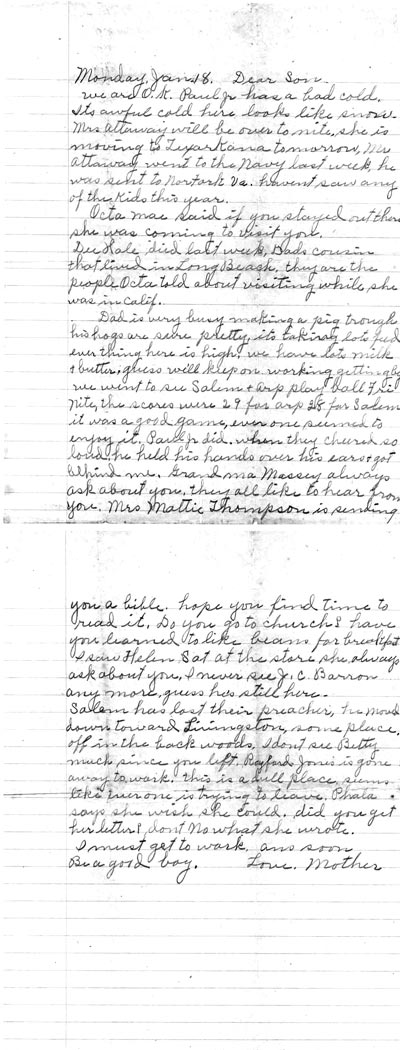 Monday, Jan. 18. Dear Son.
we are O.K. Paul Jr has a bad cold.
Its awful cold here looks like snow.
Mrs Attaway will be over to nite, she is
moving to Texarkana tomorrow, Mr
Attaway went to the Navy last week, he
was sent to Norfork Va. havent saw any
of the Kids this year.
Octa mae said if you stayed out there
she was coming to visit you.
Dee Hale died last week, Dads cousin
that lived in Long Beach, they are the
people Octa told about visiting while she
was in Calif.
Dad is very busy making a pig trough
his hogs are sure pretty, its taking lots feed
ever thing here is high, we have lots milk
& butter, guess will keep on working getting by
we went to see Salem & Arp play ball Fri
nite, the scores were 29 for arp 38 for Salem
it was a good game, ever one seemed to
enjoy it, Paul Jr did. when they cheered so
loud he held his hands over his ears & got
behind me. Grand ma Massey always
ask about you, they all like to hear from
you. Mrs Mattie Thompson is sending
you a bible. hope you find time to
read it. Do you go to church? have
you learned to like beans for breakfast
I saw Helen Sat at the store she always
ask about you, I never see J. C. Barron
any more, guess has still here.
Salem has lost their preacher, he moved
down toward Livingston, some place,
off in the back woods, I dont see Betty
much since you left. Rayford Jones is gone
away to work. this is a dull place, seems
like ever one is trying to leave, Phata
says she wish she could. did you get
her letter? dont No what she wrote.
I must get to work, ans soon
Be a good boy. Love. Mother